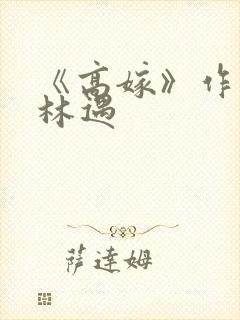 《高嫁》作
林遇
萨达姆